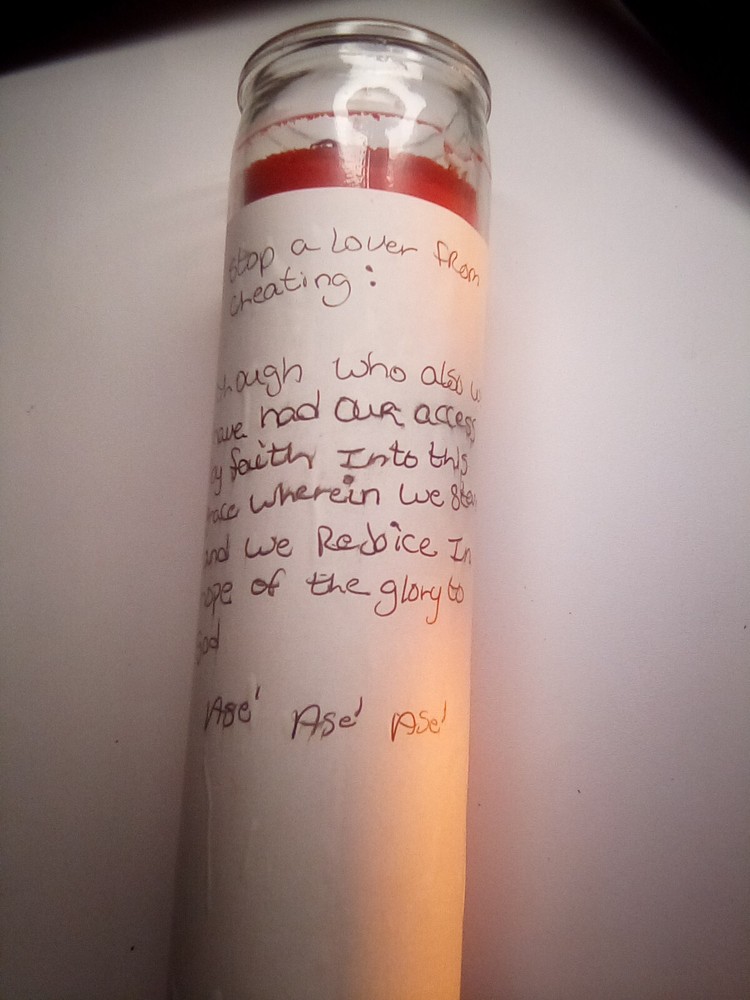 stop a lover from
cheating:
though who also w
have had our access
by faith Into this
race wherein we stan
and we Rejoice In
hope of the glory to
God
Ase' Ase' Ase'